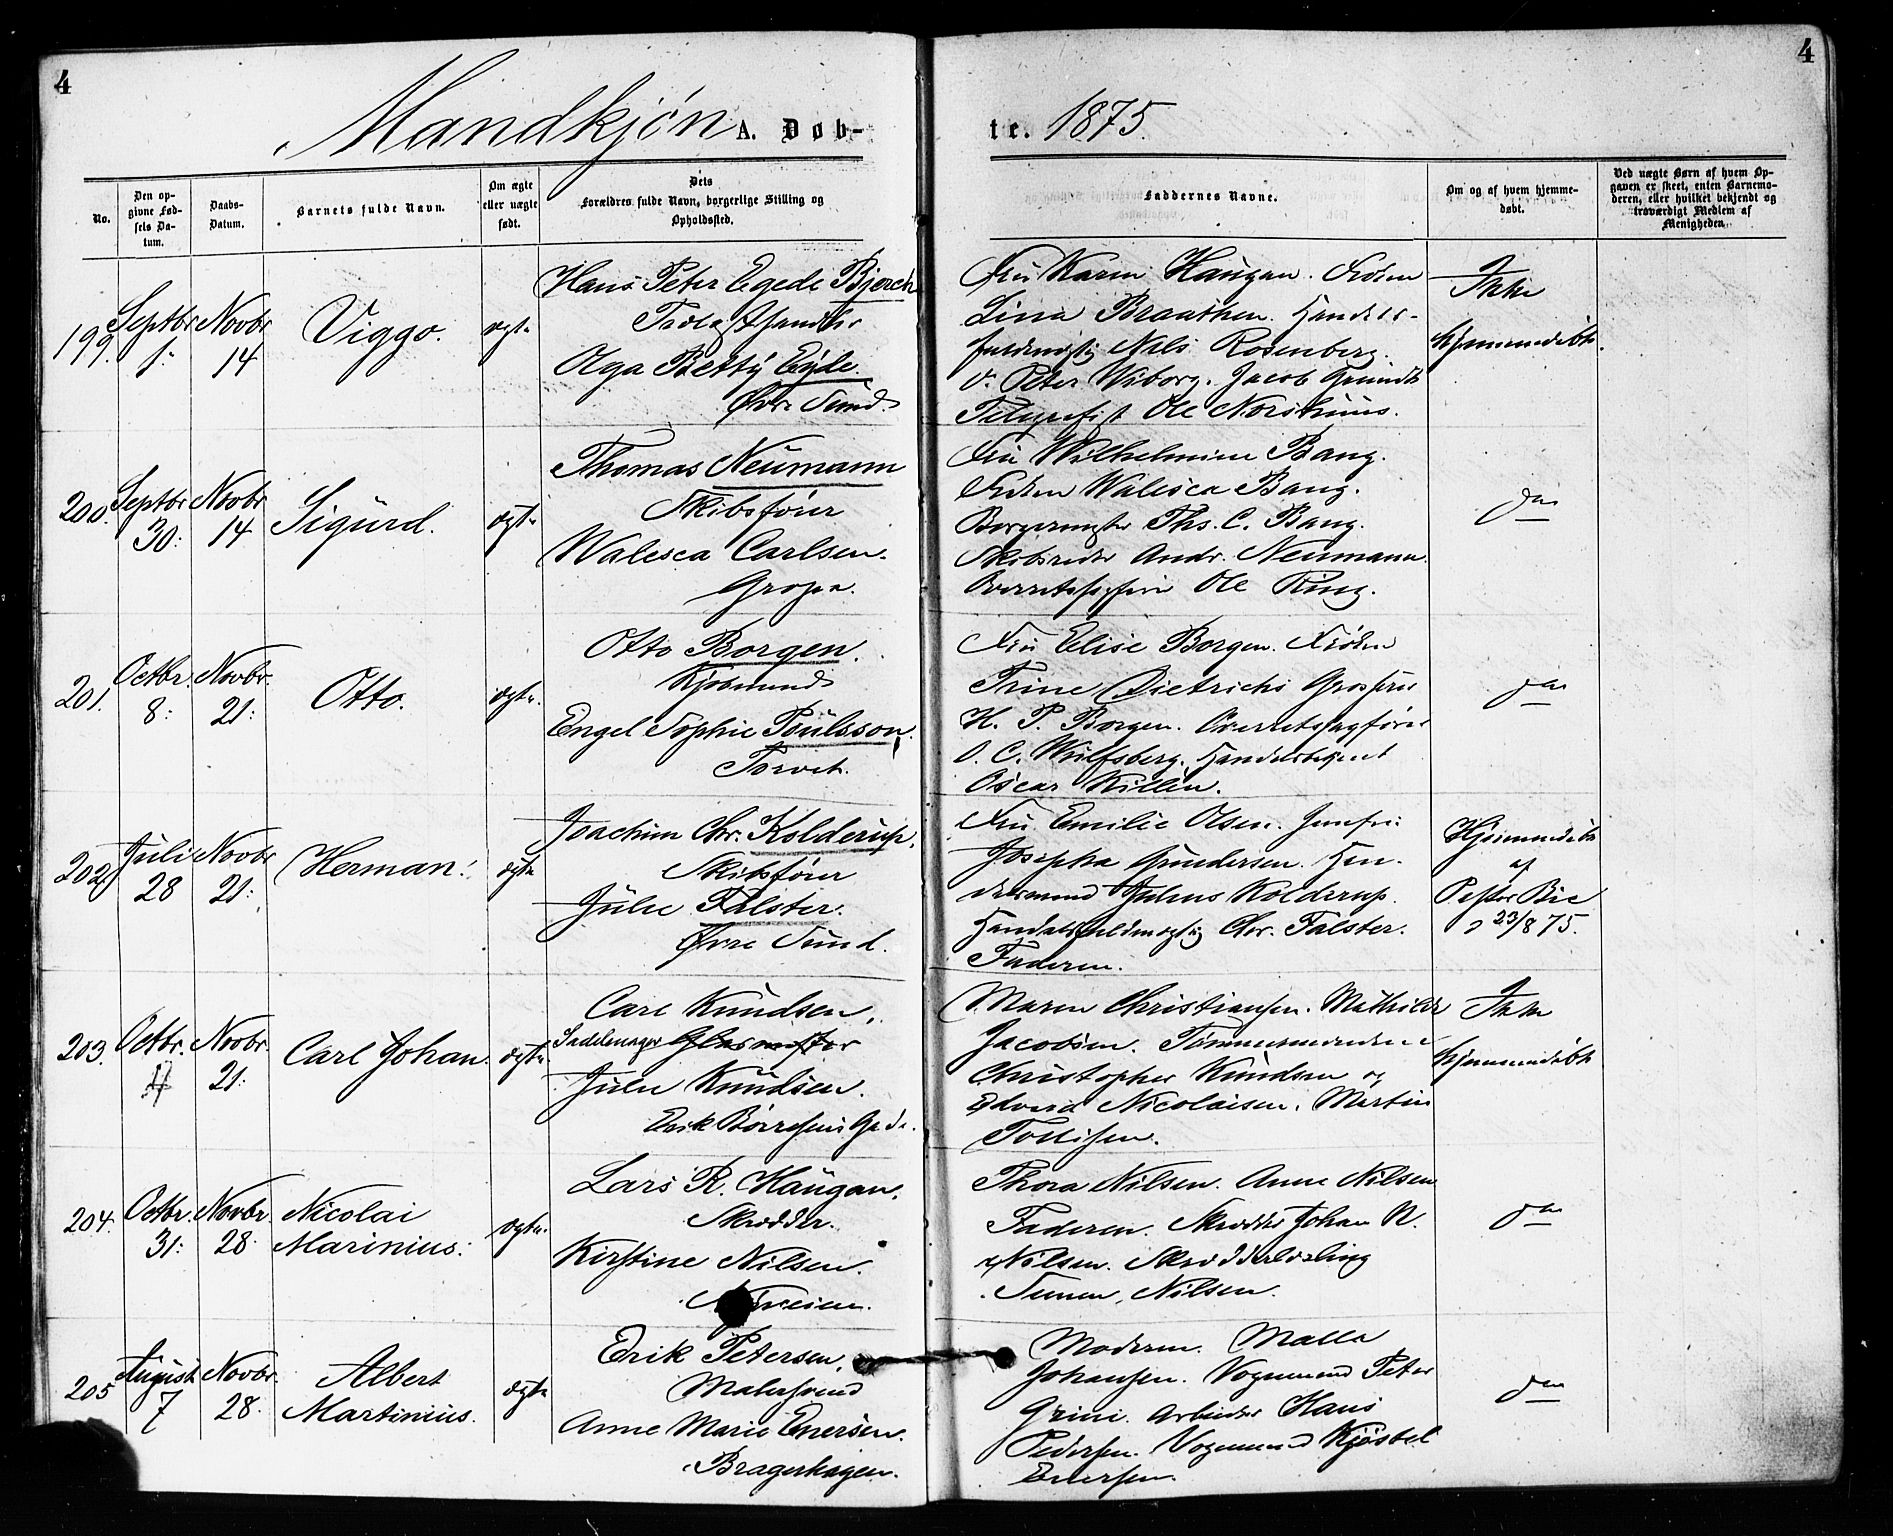 4
4
Mandkjøn A. Døb-
te. 1875.
No.
Den op-
givne Fød-
sels Da-
tum.
Daabs-
Datum.
Barnets fulde Navn.
Om ægte
eller uægte
født.
Dets
Forældres fulde Navn, borgerlige Stilling og
Opholdssted.
Faddernes Navne.
Om og af hvem hjemme-
døbt.
Ved uægte Børn af hvem Op-
gaven er skeet, enten Barnemo-
deren, eller hvilket bekjendt og
troværdigt Medlem af
Menigheden.
199.
Septbr
1.
Novbr
14
Viggo.
ægte
Hans Peter Egede Bjerch
Olga Betty Eyde.
Øvre Sund
Fru Karen Haugan. Frøken
Lina Braathen. Handels-
fuldmægtig Nils Rosenberg.
o. Peter Wiborg. Jacob Grundt
Telegrafist Ole Norshuus.
Ikke
hjemmedøbt.
200.
Septbr
30.
Novbr
14
Sigurd.
ægte
Thomas Neumann
Skibsfører
Walesca Carlsen.
Fru Wilhelmine Bang.
Frøken Walesca Bang.
Borgermester Ths. C. Bang.
Skibsreder Andr. Neumann.
Overretssagfører Ole Ring.
do
201.
Octbr.
8.
Novbr.
21.
Otto.
ægte.
Otto Borgen.
Kjøbmand
Engel Sophie Poulsson.
Torvet.
Fru Elise Borgen. Frøken
Trine Dietrichs Grosserer
H. P. Borgen. Overretssagfører
O. C. Wulfsberg. Handelsbetjent
Oscar Killen.
do
202.
Juli
28
Novbr
21.
Herman.
ægte
Joachim Chr. Kolderup.
Skibsfører
Julie Falster.
Øvre Sund.
Fru Emilie Olsen. Jomfru
Josepha Gundersen. Han-
delsmand Julius Kolderup.
Handelsfuldmægtig Chr. Falster.
Faderen.
Hjemmedøbt
af
Pastor Bie
23/8 75.
203.
Octbr.
4
Novbr.
21.
Carl Johan.
ægte
Carl Knudsen.
Sadelmager Glasmester
Julie Knudsen.
Erik Børresens Gade.
Maren Christiansen. Mathilde
Jacobsen. Tømmermændene
Christopher Knudsen og
Edvard Nicolaisen. Martin
Tollisen.
Ikke
hjemmedøbt
204.
Octbr.
31.
Novbr.
28.
Nicolai
Marinius.
ægte.
Lars R. Haugan.
Skrædder.
Kirstine Nilsen.
Thora Nilsen. Anne Nilsen
Faderen. Skrædder Johan N.
Nilsen. Skrædderlærling
Simen Nilsen.
do
205
August
7
Novbr.
28.
Albert
Martinius.
ægte
Erik Petersen.
Malersvend
Anne Marie Enersen.
Bragerhagen.
Moderen. Malla
Johansen. Vognmand Peter
Grini. Arbeider Hans
Pedersen. Vognmand Kjøstel
Enersen.
do